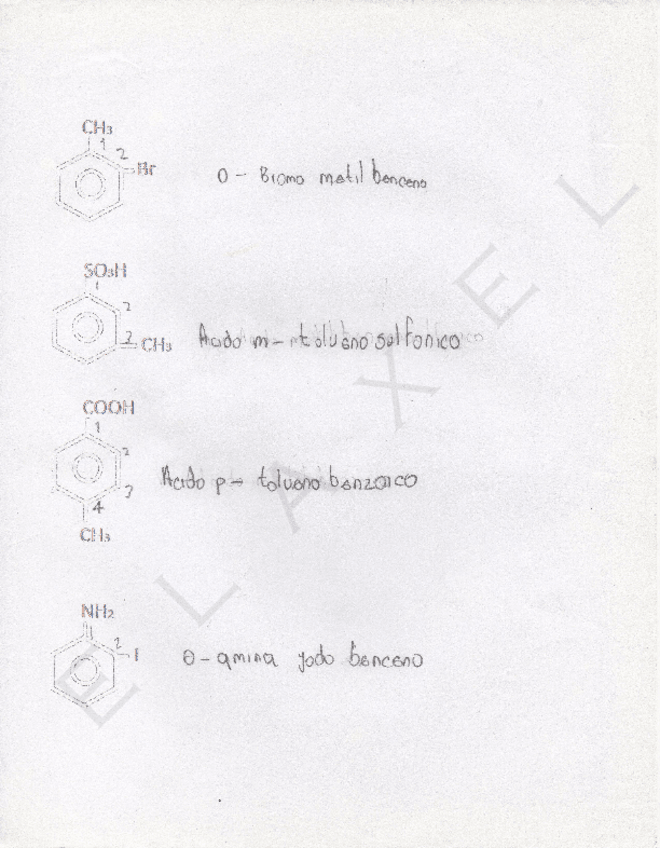 CH₃
1
2
Br
O - Bromo metil benceno
SO₃H
1
2
3
CH₃
Acido m - tolueno sulfonico
COOH
1
2
3
4
CH₃
Acido p - tolueno benzoico
NH₂
2
I
O - amina yodo benceno
ELAXEL